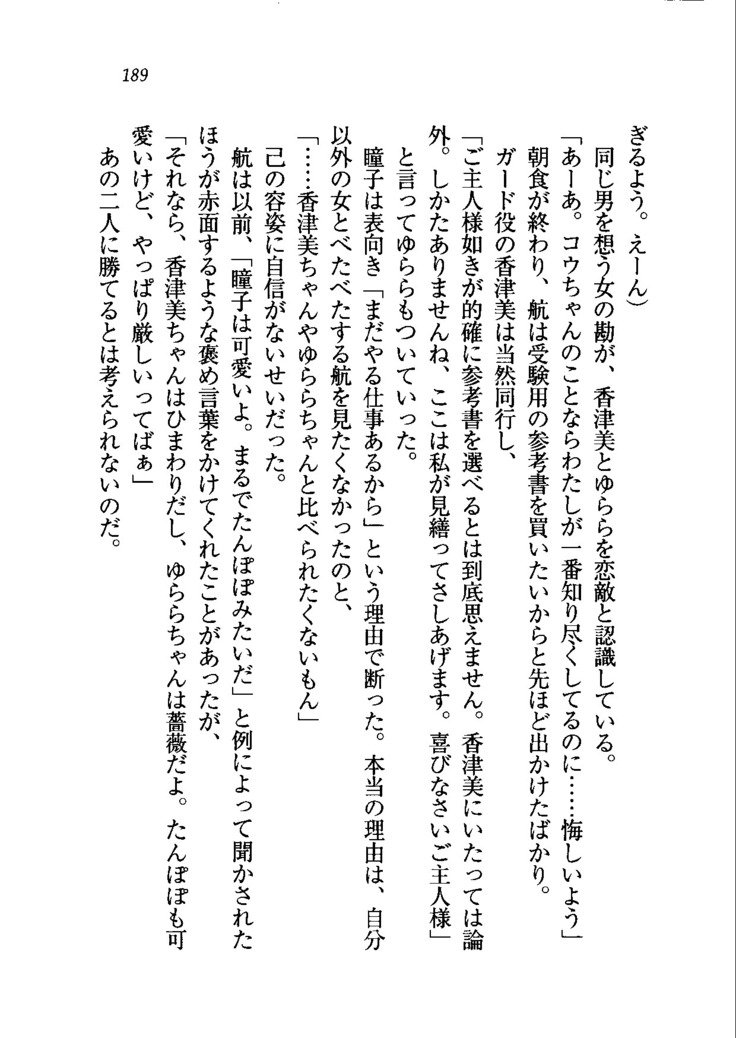 189
ぎるよう。えーん)
同じ男を想う女の勘が、香津美とゆららを恋敵と認識している。
「あーあ。コウちゃんのことならわたしが一番知り尽くしてるのに……悔しいよう」
朝食が終わり、航は受験用の参考書を買いたいからと先ほど出かけたばかり。
ガード役の香津美は当然同行し、
「ご主人様如きが的確に参考書を選べるとは到底思えません。香津美にいたっては論
外。しかたありませんね、ここは私が見繕ってさしあげます。喜びなさいご主人様」
と言ってゆららもついていった。
瞳子は表向き「まだやる仕事あるから」という理由で断った。本当の理由は、自分
以外の女とべたべたする航を見たくなかったのと、
「……香津美ちゃんやゆららちゃんと比べられたくないもん」
己の容姿に自信がないせいだった。
航は以前、「瞳子は可愛いよ。まるでたんぽぽみたいだ」と例によって聞かされた
ほうが赤面するような褒め言葉をかけてくれたことがあったが、
「それなら、香津美ちゃんはひまわりだし、ゆららちゃんは薔薇だよ。たんぽぽも可
愛いけど、やっぱり厳しいってばぁ」
あの二人に勝てるとは考えられないのだ。